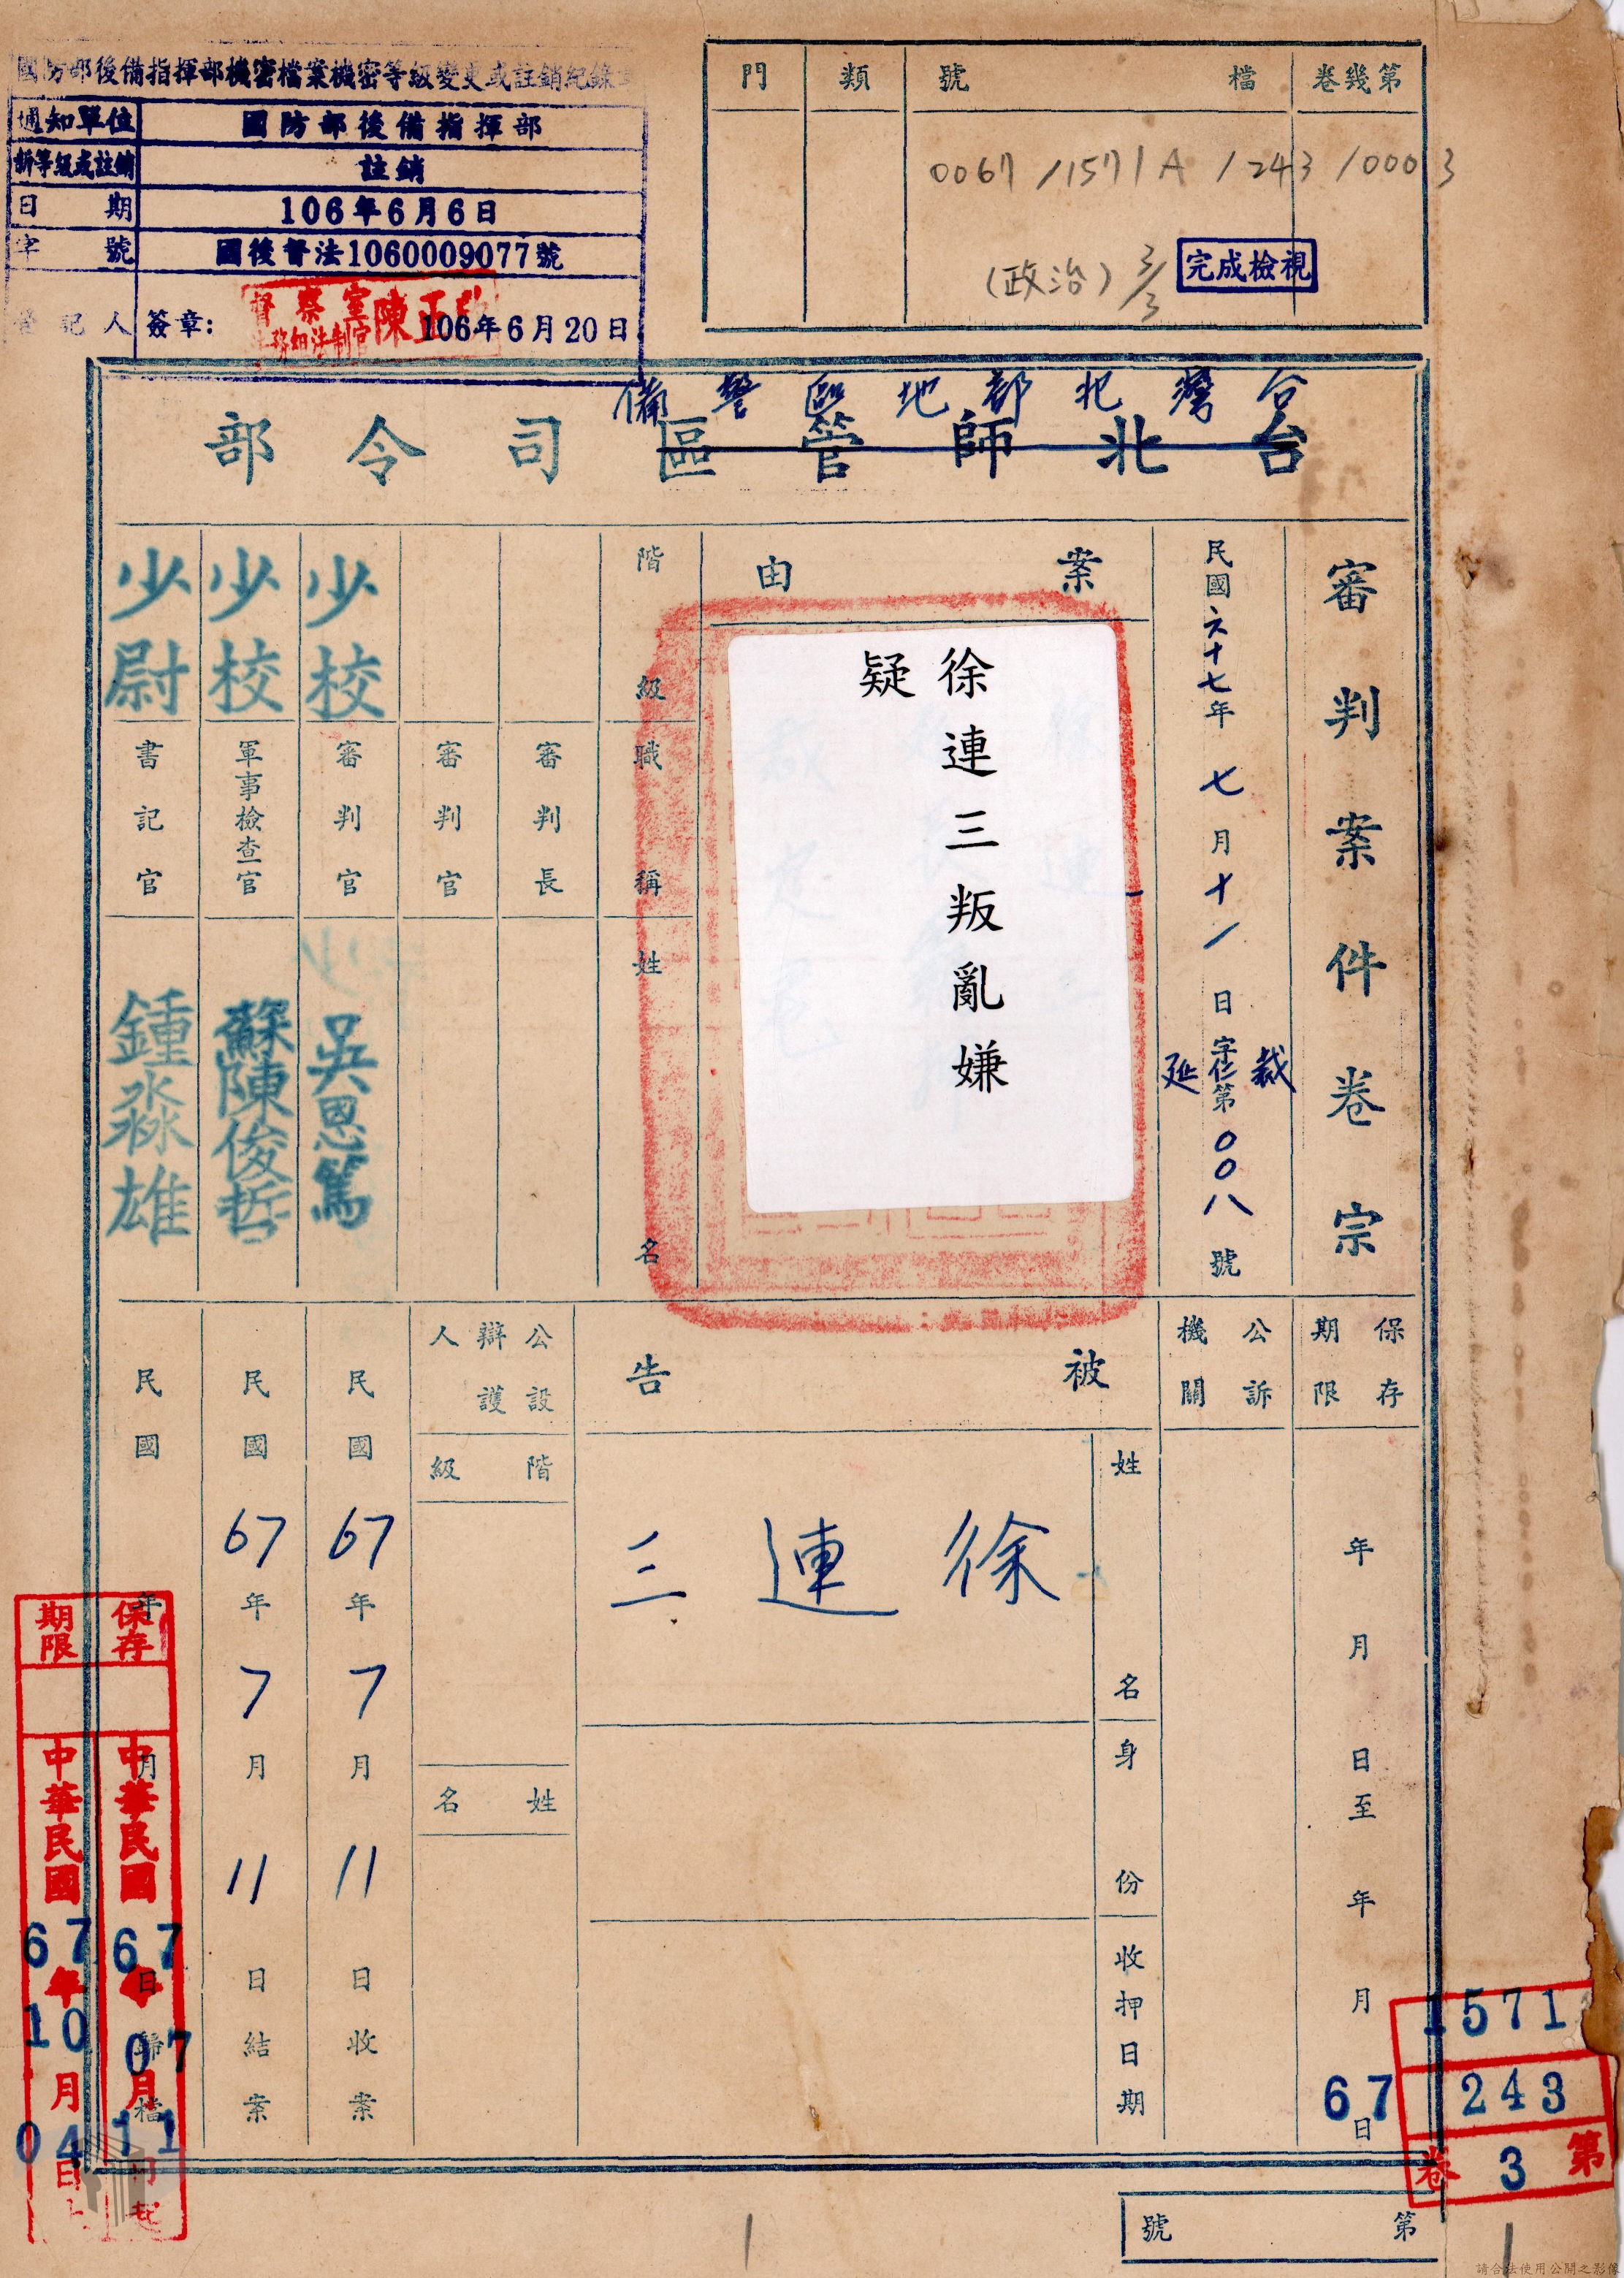 國防部後備指揮部機密檔案機密等級變更或註銷紀錄
通知單位 國防部後備指揮部
新等級或註銷 註銷
日期 106年6月6日
字號 國後督法1060009077號
登記人簽章： 106年6月20日
督察室
陳正
第幾卷 檔號 類 門
0067/1571A/243/0003
(政治) 3/3
完成檢視
台灣北部地區警備
台北師管區司令部
審判案件卷宗
民國六十七年七月十一日
裁延字第00八號
案由
徐連三叛亂嫌
疑
階級 職稱 姓名
審判長
審判官
少校 審判官 吳恩篤
少校 軍事檢查官 蘇陳俊哲
少尉 書記官 鍾淼雄
保存期限
年月日至年月日
67
公訴機關
被告
姓名
徐連三
身份
收押日期
公設辯護人
階級
姓名
民國67年7月11日收案
民國67年7月11日結案
民國年月日歸檔
保存期限
中華民國67年07月11日起
中華民國67年10月04日止
1571
243
第3卷
第號
請合法使用公開之影像